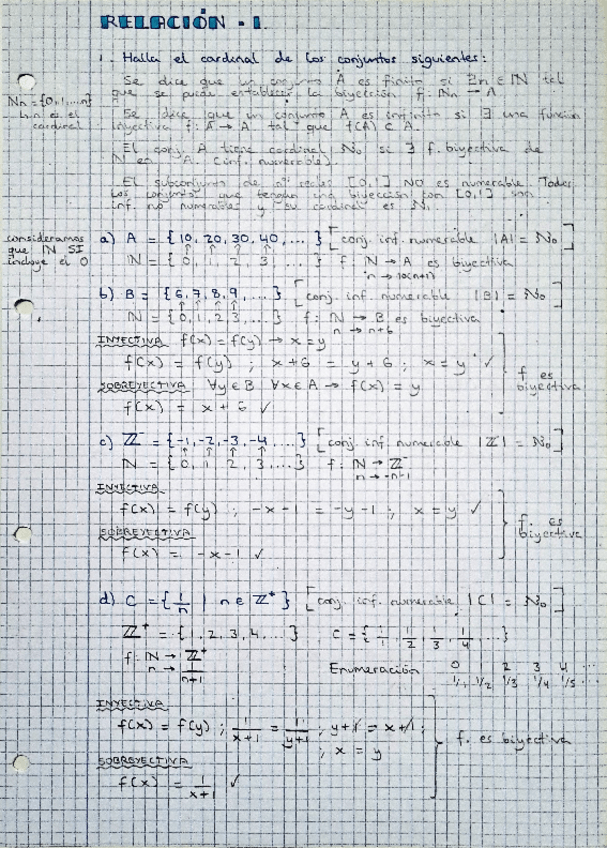 RELACIÓN - 1.
1. Halla el cardinal de los conjuntos siguientes:
Se dice que un conjunto A es finito si ∃n ∈ ℕ tal
que se puede establecer la biyección f: ℕn → A
ℕn = {0,1,...,n}
n es el
cardinal
Se dice que un conjunto A es infinito si ∃ una función
inyectiva f: A → A tal que f(A) ⊂ A.
El conj. A tiene cardinal ℵ₀ si ∃ f. biyectiva de
ℕ en A. (inf. numerable).
El subconjunto de nº reales [0,1] NO es numerable. Todos
los conjuntos que tengan una biyección con [0,1] son
inf. no numerables y su cardinal es ℵ₁.
consideramos
que ℕ SI
incluye el 0
a) A = {10, 20, 30, 40, ...} [conj. inf. numerable |A| = ℵ₀]
ℕ = {0, 1, 2, 3, ...} f: ℕ → A es biyectiva
n → 10(n+1)
b) B = {6, 7, 8, 9, ...} [conj. inf. numerable |B| = ℵ₀]
ℕ = {0, 1, 2, 3, ...} f: ℕ → B es biyectiva
n → n+6
INYECTIVA f(x) = f(y) → x = y
f(x) = f(y) ; x+6 = y+6 ; x = y ✓
SOBREYECTIVA ∀y ∈ B ∀x ∈ A → f(x) = y
f(x) = x + 6 ✓
f es
biyectiva
c) ℤ⁻ = {-1, -2, -3, -4, ...} [conj. inf. numerable |ℤ| = ℵ₀]
ℕ = {0, 1, 2, 3, ...} f: ℕ → ℤ⁻
n → -n-1
INYECTIVA
f(x) = f(y) ; -x-1 = -y-1 ; x = y ✓
SOBREYECTIVA
f(x) = -x-1 ✓
f. es
biyectiva
d) C = {1/n | n ∈ ℤ⁺} [conj. inf. numerable |C| = ℵ₀]
ℤ⁺ = {1, 2, 3, 4, ...} C = {1/1, 1/2, 1/3, 1/4, ...}
f: ℕ → ℤ⁺
n → 1/n+1
Enumeración 0 1 2 3 4 ...
1/1 1/2 1/3 1/4 1/5 ...
INYECTIVA
f(x) = f(y) ; 1/x+1 = 1/y+1 ; y+1 = x+1 ;
; x = y
SOBREYECTIVA
f(x) = 1/x+1 ✓
f. es biyectiva